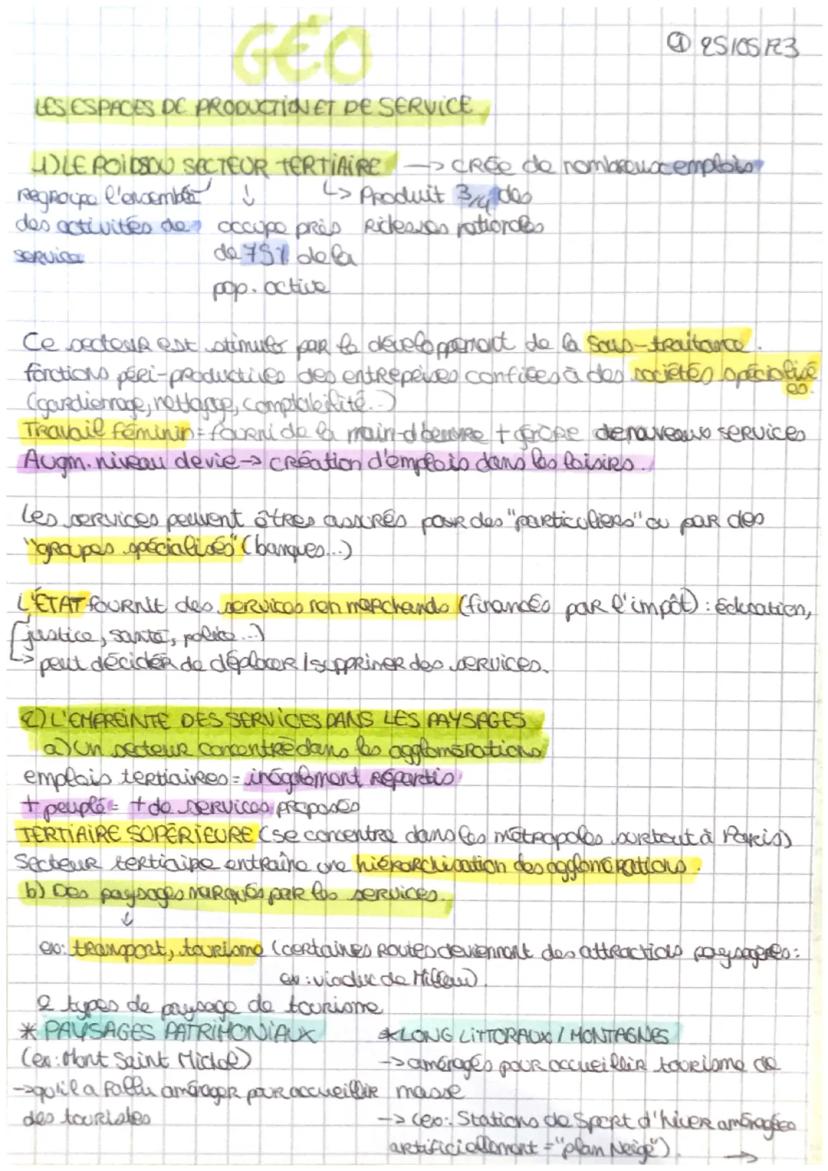 GÉO
① 25/05/23
LES ESPACES DE PRODUCTION ET DE SERVICE
1) LE POIDS DU SECTEUR TERTIAIRE → CRÉE de nombreux emplois
Regroupe l'ensemble ↓ ↳ Produit 3/4 des
des activités de occupe près Richesses nationales
service de 75% de la
pop. active
Ce secteur est stimuler par le développement de la sous-traitance.
fonctions péri-productives des entreprises confiées à des sociétés spécialisé
es.
(gardiennage, nettoyage, comptabilité...)
Travail féminin = fourni de la main d'œuvre + génère de nouveaux services
Augm. niveau de vie → création d'emplois dans les loisirs.
Les services peuvent êtres assurés pour des "particuliers" ou par des
"groupes spécialisés" (banques...)
L'ÉTAT fournit des services non marchands (financés par l'impôt) : éducation,
justice, santé, police...)
↳ peut décider de déplacer / supprimer des services.
2) L'EMPREINTE DES SERVICES DANS LES PAYSAGES
a) Un secteur concentré dans les agglomérations
emplois tertiaires = inégalement répartis
+ peuplé = + de services proposés
TERTIAIRE SUPÉRIEURE (se concentre dans les métropoles surtout à Paris)
Secteur tertiaire entraîne une hiérarchisation des agglomérations.
b) Des paysages marqués par les services.
↓
ex: transport, tourisme (certaines routes deviennent des attractions paysagères :
ex : viaduc de Millau)
2 types de paysage de tourisme
* PAYSAGES PATRIMONIAUX * LONG LITTORAUX / MONTAGNES
(ex: Mont Saint Michel) → aménagés pour accueillir tourisme de
→ qu'il a fallu aménager pour accueillir masse
des touristes → (ex: Stations de Sport d'hiver aménagées
artificiellement = "plan Neige").
→